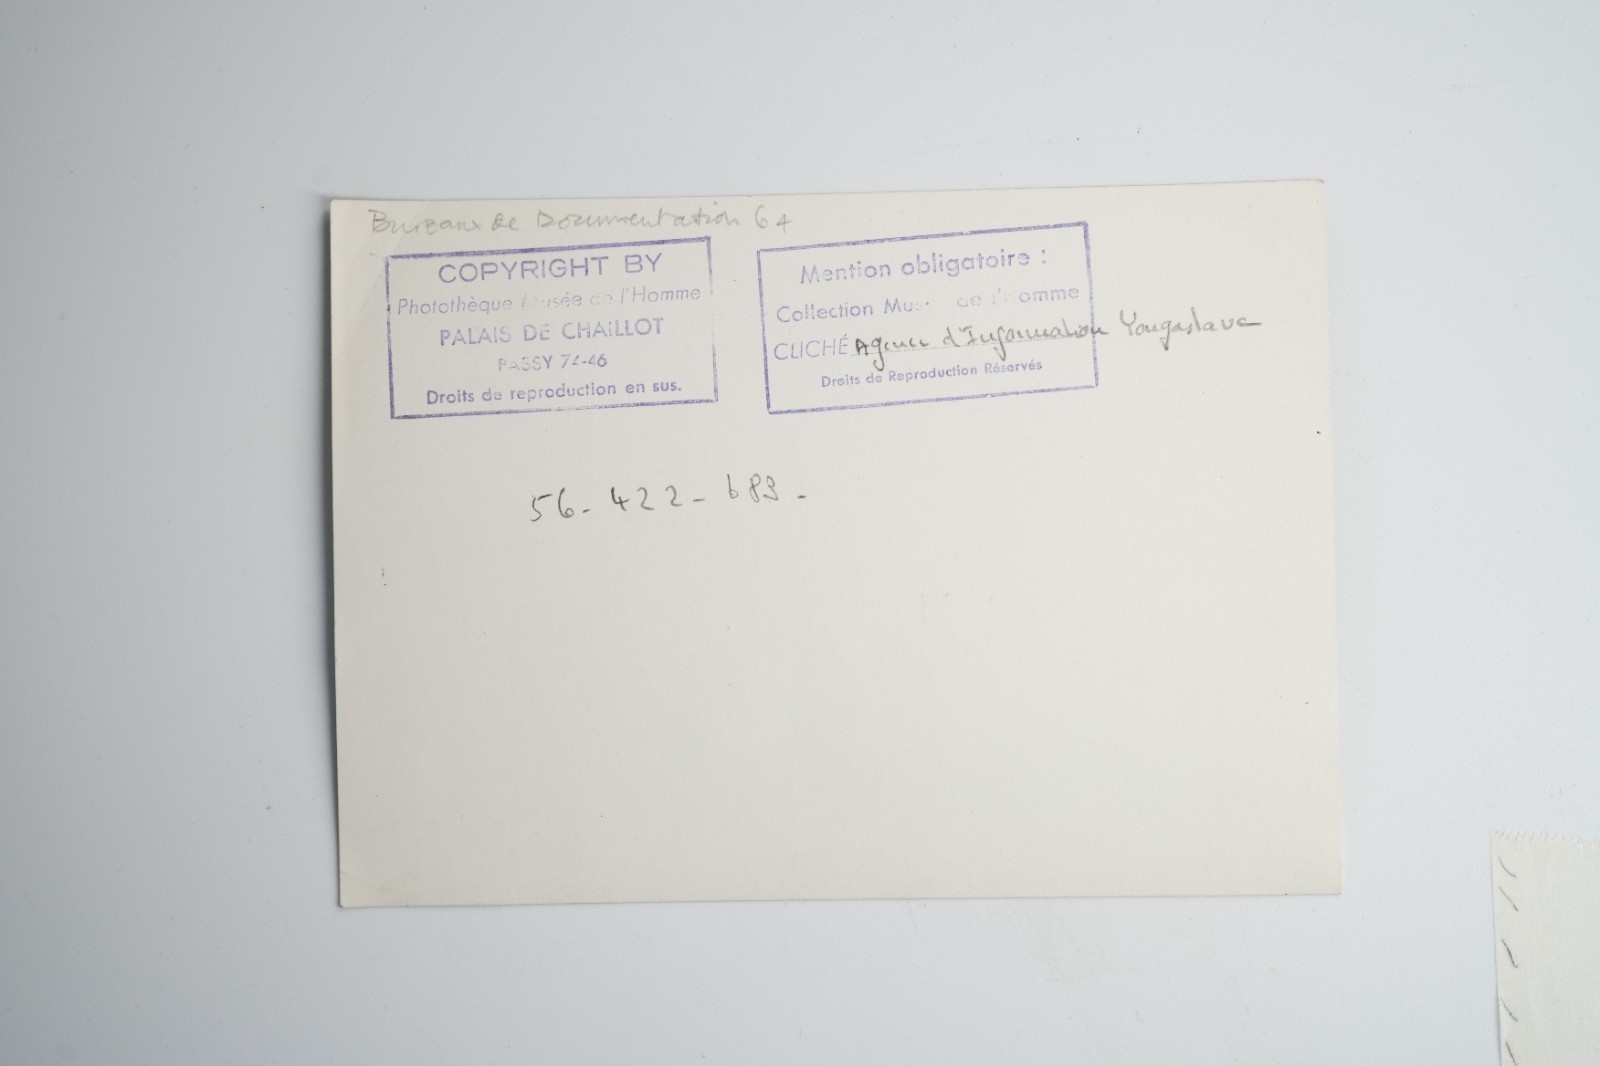 Bureaux de Documentation 64
COPYRIGHT BY
Photothèque Musée de l'Homme
PALAIS DE CHAILLOT
PASSY 74-46
Droits de reproduction en sus.
Mention obligatoire :
Collection Mus de l'Homme
CLICHÉ Agence d'Information Yougoslave
Droits de Reproduction Réservés
56-422-683-